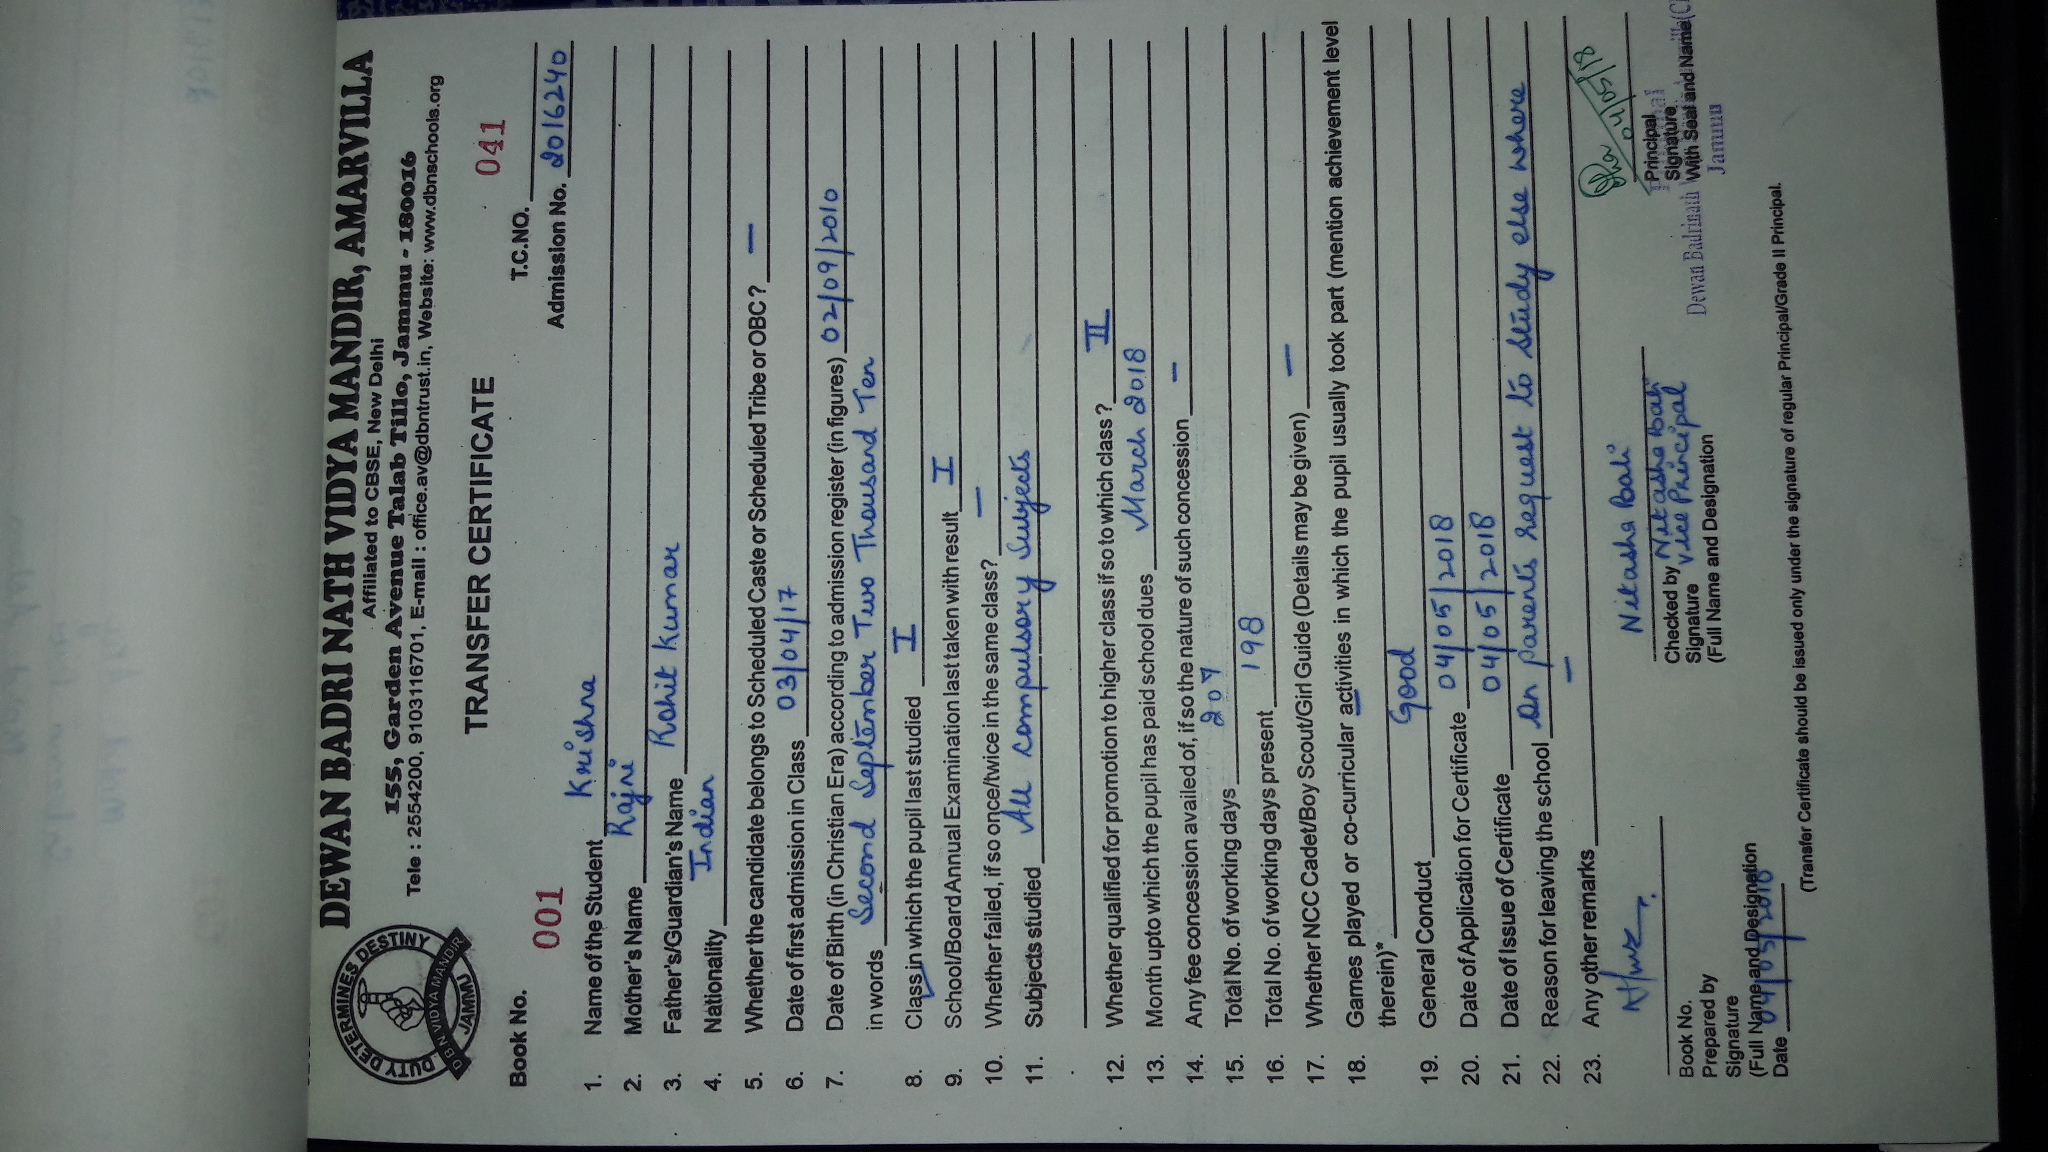 DEWAN BADRI NATH VIDYA MANDIR, AMARVILLA
Affiliated to CBSE, New Delhi
155, Garden Avenue Talab Tillo, Jammu - 180016
Tele : 2554200, 9103116701, E-mail : office.av@dbntrust.in, Website: www.dbnschools.org
DUTY DETERMINES DESTINY
D.B.N. VIDYA MANDIR
JAMMU
TRANSFER CERTIFICATE
Book No. 001 T.C.NO. 041
Admission No. 2016240
1. Name of the Student Krishna
2. Mother's Name Rajni
3. Father's/Guardian's Name Rohit Kumar
4. Nationality Indian
5. Whether the candidate belongs to Scheduled Caste or Scheduled Tribe or OBC? —
6. Date of first admission in Class 03/04/17
7. Date of Birth (in Christian Era) according to admission register (in figures) 02/09/2010
in words Second September Two Thousand Ten
8. Class in which the pupil last studied I
9. School/Board Annual Examination last taken with result I
10. Whether failed, if so once/twice in the same class? —
11. Subjects studied All Compulsory Subjects
12. Whether qualified for promotion to higher class if so to which class ? II
13. Month upto which the pupil has paid school dues March 2018
14. Any fee concession availed of, if so the nature of such concession —
15. Total No. of working days 207
16. Total No. of working days present 198
17. Whether NCC Cadet/Boy Scout/Girl Guide (Details may be given) —
18. Games played or co-curricular activities in which the pupil usually took part (mention achievement level
therein)* —
19. General Conduct Good
20. Date of Application for Certificate 04/05/2018
21. Date of Issue of Certificate 04/05/2018
22. Reason for leaving the school On parents request to study else where
23. Any other remarks —
Nitasha Bali
04/05/18
Book No.
Prepared by
Signature
(Full Name and Designation
Date 04/05/2018
Checked by Nitasha Bali
Signature Vice Principal
(Full Name and Designation
Principal
Signature
With Seal and Name
Principal
Dewan Badrinath
Jammu
(Transfer Certificate should be issued only under the signature of regular Principal/Grade II Principal.